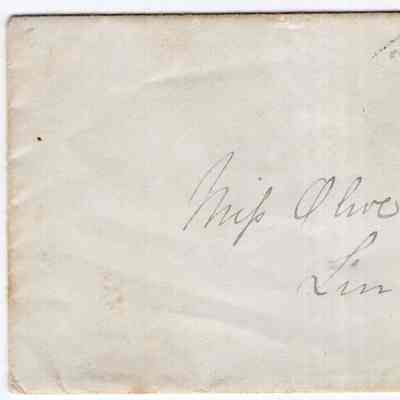 Miss Olive
Lin